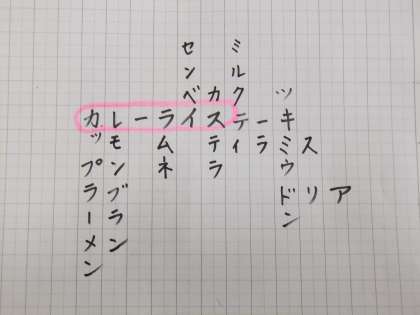 カレーライステーキ
カップラーメン
レモンブラン
ラムネ
センベイ
カステラ
ミルクティ
ティラミス
ツキミウドン
ドリア